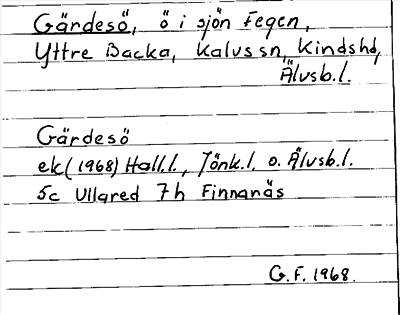 Gärdesö, ö i sjön Fegen,
Yttre Backa, Kalvs sn, Kindshd,
Älvsb.l.
Gärdesö
ek (1968) Hall.l., Jönk.l. o. Älvsb.l.
5c Ullared 7h Finnanäs
G.F. 1968.